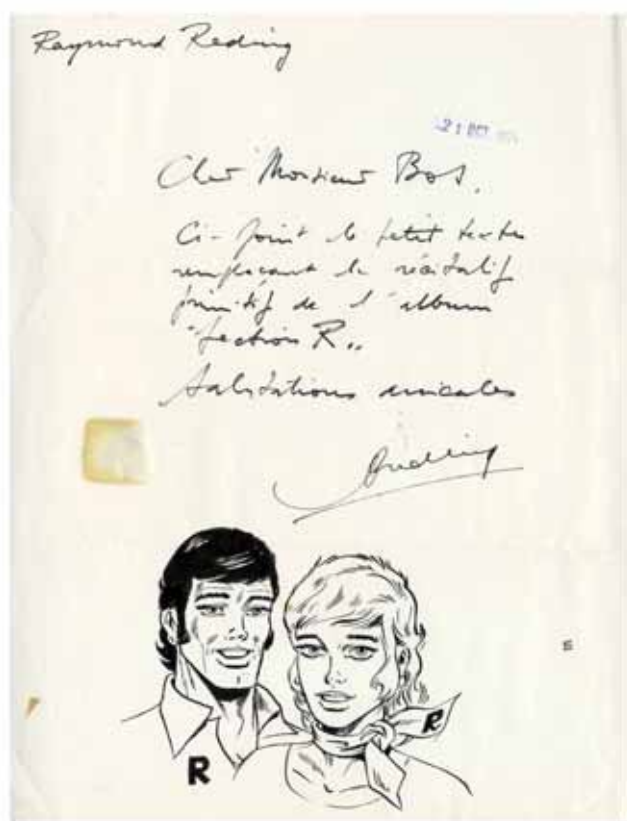 Raymond Reding
21 OCT
Cher Monsieur Bos.
Ci-joint le petit texte
remplaçant le récitatif
primitif de l'album
"Section R"
Salutations amicales
RReding
R
R